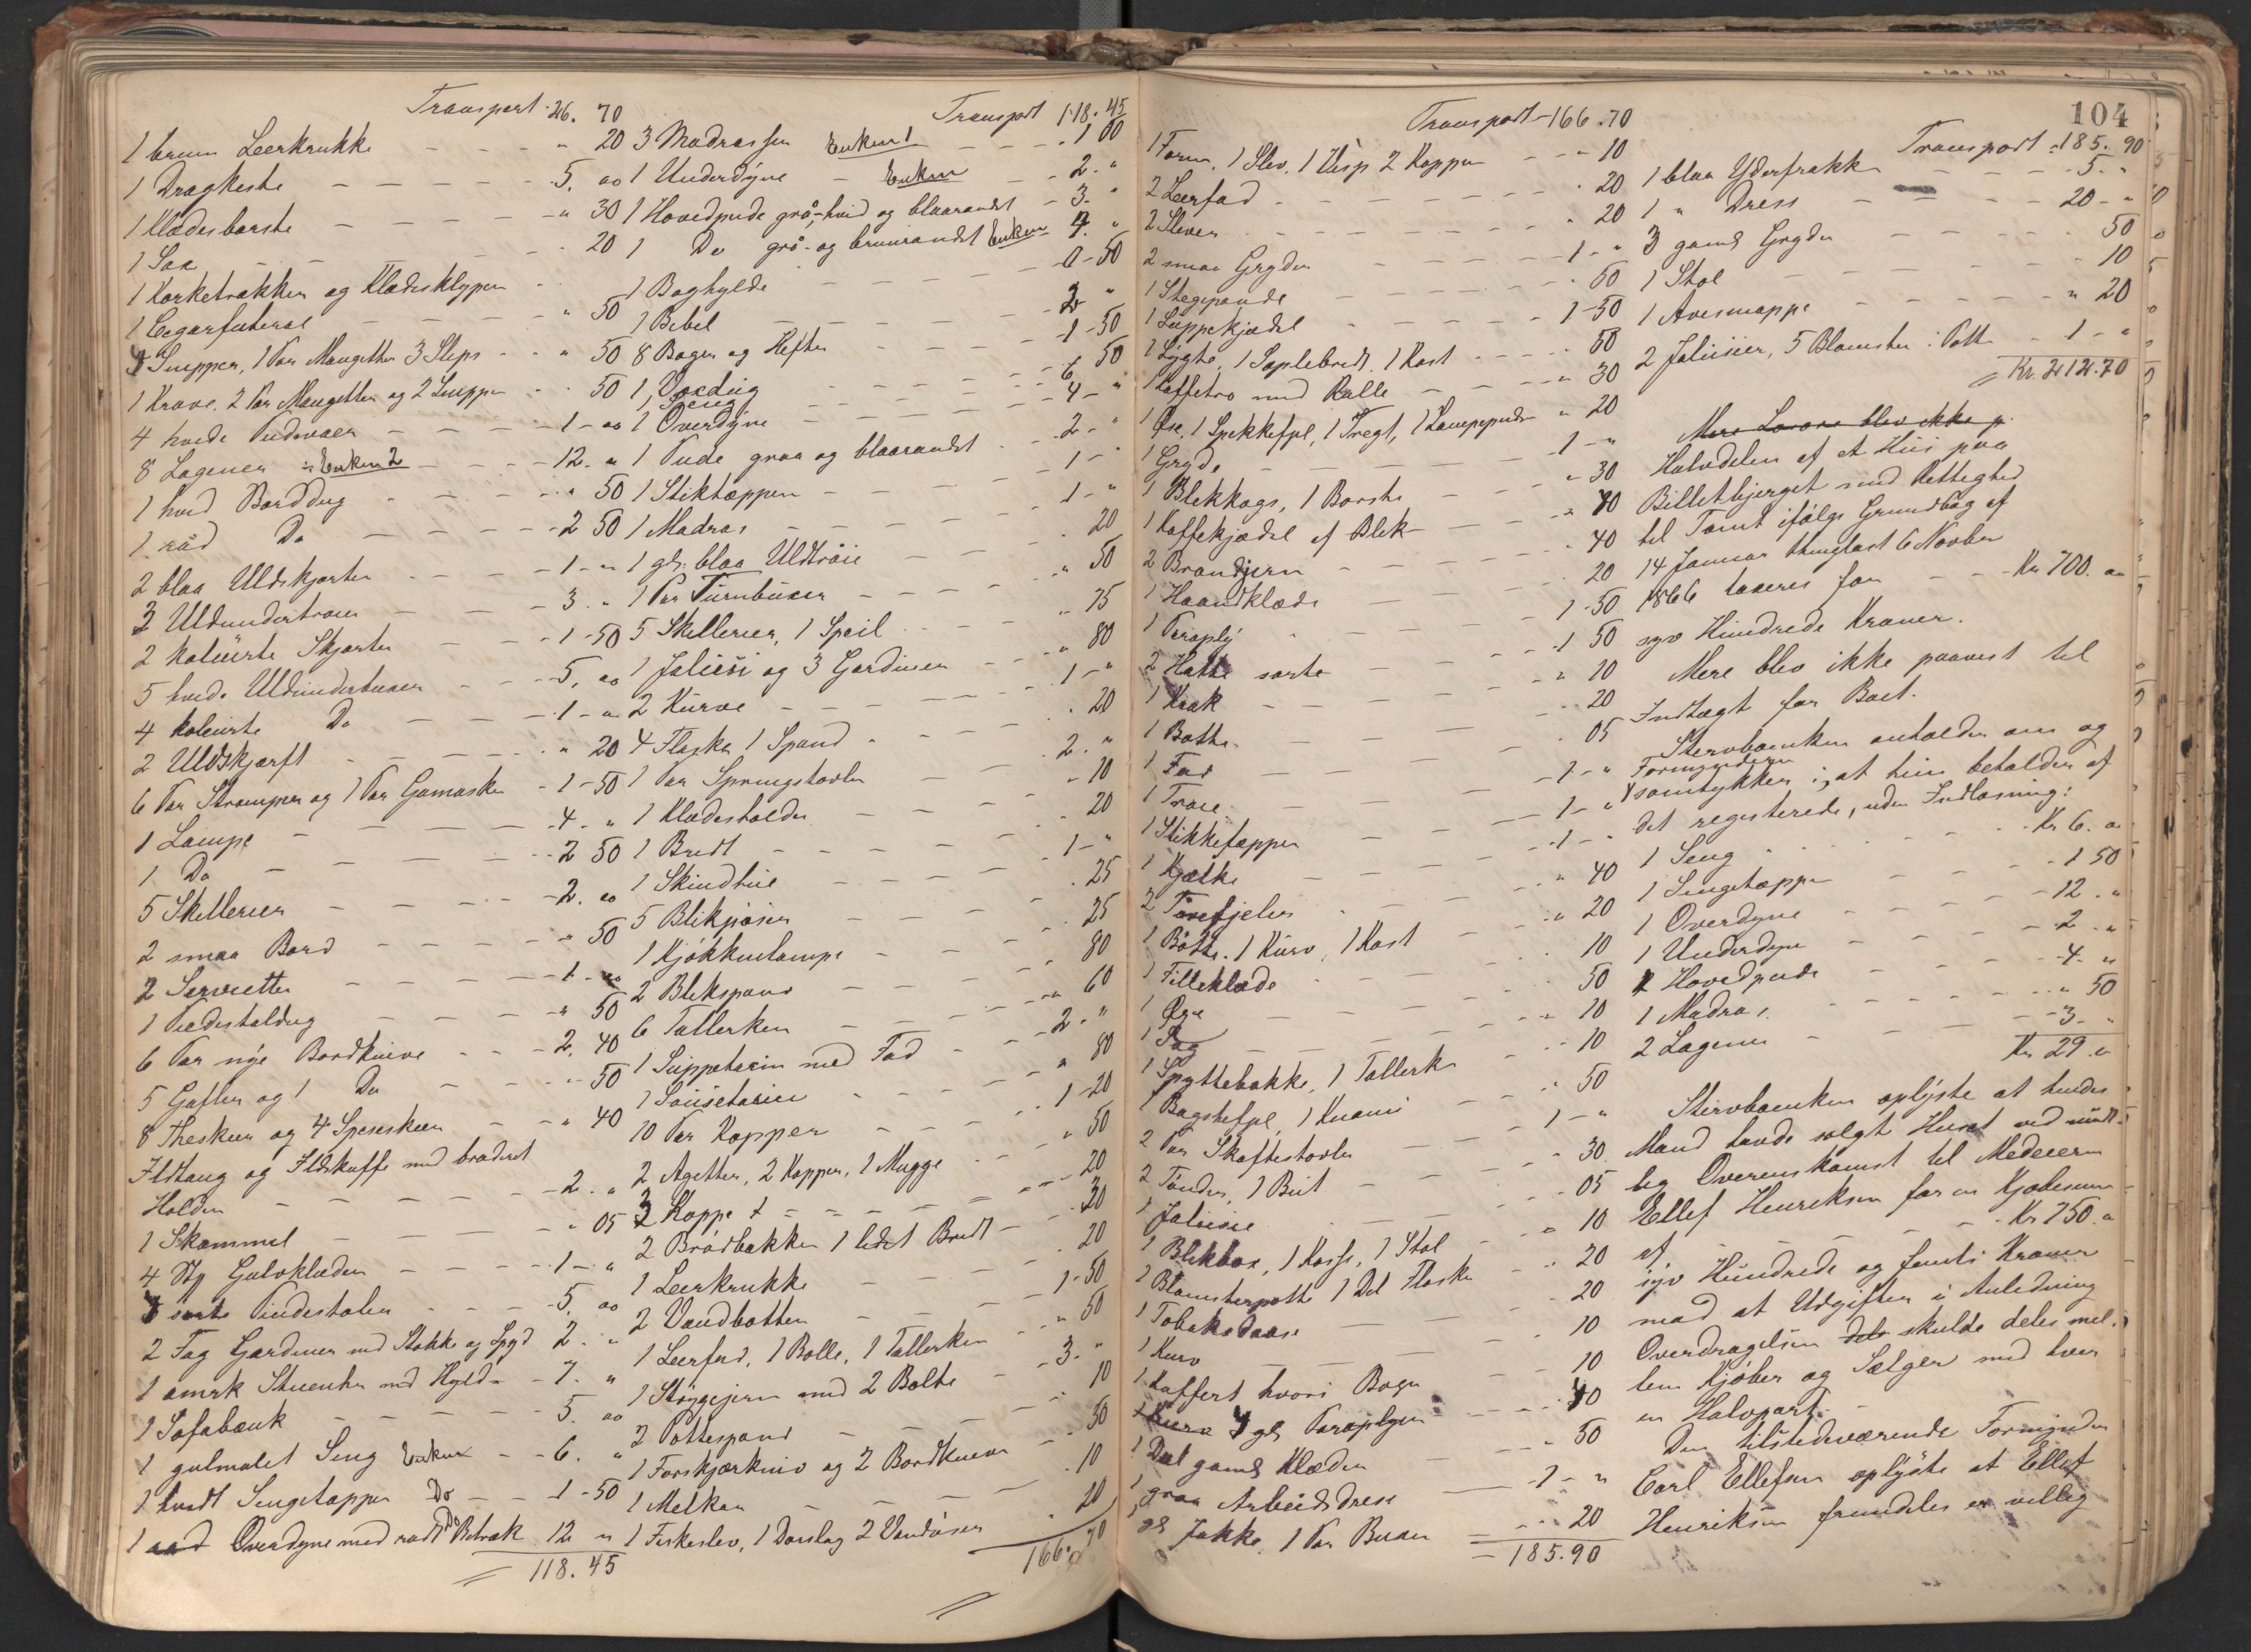 Transport 26. 70
1 bruun Leerkrukke " 20
1 Dragkeste 5. "
1 Klædesbørste " 30
1 Sax 20
1 Korketrækker og Klædesklypen
1 Cegarfuteral " 50
4 Snipper, 1 Par Mangetter 3 Slips " 50
1 Krave. 2 Par Mangetter og 2 Snipper 50
4 hvide Pudevaer 1 - "
8 Lagener Enken 2 12. "
1 hvid Borddug " 50
1 rød Do 2 50
2 blaa Uldskjorter 1 - "
3 Uldundertrøier 3. "
2 kulørte Skjorter 1 - 50
5 hvide Uldunderbuxer 5. "
4 kulørte Do 1 - "
2 Uldskjærf " 20
6 Par Strømper og 1 Par Gamasker 1 - 50
1 Lampe 4. "
1 Do 2 50
5 Skillerier 2. "
2 smaa Bord " 50
2 Servietter 1 - "
1 Piedestaldug " 50
6 Par nye Bordknive 2. 40
5 Gafler og 1 Do " 50
8 Theskeer og 4 Speseskeer " 40
Ildtang og Ildskuffe med broderet
Holder 2. "
1 Skammel " 05
4 Stk Gulvklæder 1 - "
sorte Pindestoler 5. "
2 Fag Gardiner med Stokke og Spyd 2. "
1 amrk Stueuhr med Hylde 7. "
1 Sofabænk 5. "
1 gulmalet Seng Enken 6. "
1 hvidt Sengetæppe Do 1 - 50
1 Overdyne med rødt Do Betræk 12 "
118. 45
Transport 118. 45
3 Madrasser Enken 1 1 00
1 Underdyne Enken 2. "
1 Hovedpude grå-hvid og blaarandet 3. "
1 Do grå- og bruunrandet Enken 4. "
1 Boghylde 0 - 50
1 Bibel 2 "
8 Bøger og Hefter 1 - 50
1 Voxdug 50
1 Seng 6
1 Overdyne 4 - "
1 Pude graa og blaarandet 2 - "
1 Stiktæppen 1 - "
1 Madras 1 - "
1 gl: blaa Uldtrøie 20
1 Par Turnbuxer " 50
5 Skillerier, 1 Speil " 75
1 Jalusi og 3 Gardiner " 80
2 Kurve 1 - "
4 Flasker 1 Spand 20
1 Par Springstøvler 2. "
1 Klædesholder " 10
1 Bredt 20
1 Skindhue 1 - "
5 Blikpiøser 25
1 Kjøkkenlampe 25
2 Blikspand 80
6 Tallerken 60
1 Suppeterin med Fad 2. "
1 Sauseterin " 80
10 Par Kopper 1 - 20
2 Asietter, 2 Kopper, 1 Mugge " 50
3 Koppe 20
2 Brødbakker 1 lidet Bredt 20
1 Leerkrukke 20
2 Vandbøtter 1 - 50
1 Leerfad, 1 Bolle, 1 Tallerken " 50
1 Strygejern med 2 Bolte 3. "
2 Pottespand 10
1 Forskjærkniv og 2 Bordknive 30
1 Melkan 10
1 Fiskeslev, 1 Dørslag 2 Vandøser 20
166. 70
104
Transport - 166. 70
1 Form, 1 Slev. 1 Visp 2 Kopper " 10
2 Leerfad 20
2 Slever " 20
2 smaa Gryder 1 - "
1 Stegepande 50
1 Suppekjædel 1 - 50
1 Lygte, 1 1 Kost 50
1 Kaffetro med Rulle " 30
1 Øse, 1 Spekkefjel, 1 Tregt, 1 Lampepuds " 20
1 Gryde 1 - "
1 Blekkags, 1 Børste " 30
1 Kaffekjædel af Blek " 70
2 Brandjern " 40
1 Haandklæde 20
1 Paraply 1 - 50
2 Hatte sorte 1 50
1 Krak " 10
1 Bøtte 20
1 Fad 05
1 Trøie 1 - "
1 Stikketæppe 1 - "
1 Kjælke 1 -
2 fjeler " 40
1 Bøtte. 1 Kurv, 1 Kost " 20
1 Filleklæde 10
1 Øxe 50
1 Sag " 10
1 Spyttebakke, 1 Tallerk " 10
1 Bagstefjel, 1 Knani " 50
2 Par Skaftestøvler 1 - "
2 Tønder, 1 Bút 30
1 Jalusie 05
1 Blikbox, 1 Kasse, 1 Stol " 10
1 Blomsterpotte 1 Del Flasker 20
1 Tobaksdaase 20
1 Kurv 10
1 Koffert hvori Bøger 10
4 gl Paraplyer 40
1 Del gamle Klæder " 50
1 graa Arbeidsdress 1 - "
1 gl Jakke, 1 Par Buxer " 20
185. 90
Transport 185. 90
1 blaa Yderfrakke 5. "
1 " Dress 20 - "
3 gamle Gryder 50
1 Stol 10
1 Avismappe " 20
2 Jalusier, 5 Blomster i Potte 1 - "
Kr. 212.70
Mere Løsøre blev ikke p.
Halvdelen af et Hus paa
Billetbjerget med Rettighed
til Tomt ifølge Grundbog af
14 Januar thinglæst 6 Novber
1866 taxeres for Kr 700. "
syv Hundrede Kroner.
Mere blev ikke paavist til
Indtægt for Boet.
Stervboenken anholder om og
Formynderen
samtykker i, at hun beholder af
det registerede, uden Indløsning:
1 Seng Kr 6. "
1 Sengetæppe 1 50
1 Overdyne 12. "
1 Underdyne 2. "
2 Hovedpude 4. "
1 Madras " 50
2 Lagener 3. "
Kr 29. "
Stervboenken oplyste at hendes
Mand havde solgt Huset ved mundt-
lig Overenskomst til Medeieren
Ellef Henriksen for en Kjøbesum
af Kr 750. "
syv Hundrede og femti Kroner
mod at Udgiften i Anledning
Overdragelsen skulde deles mel-
lem Kjøber og Sælger med hver
en Halvpart.
Den tilstedeværende Formynder
Carl Ellefsen oplyste at Ellef
Henriksen fremdeles er villig